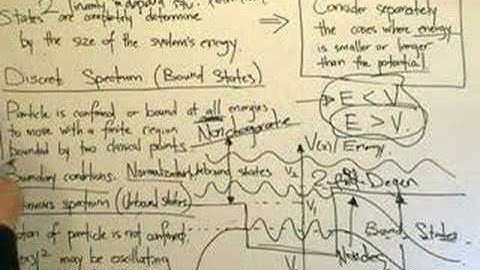 2 linearly
States are completely determine
by the size of the system's energy.
Consider separately
the cases where energy
is smaller or larger
than the potential
Discrete Spectrum (Bound States)
E < V
E > V.
Particle is confined or bound at all energies
to move with a finite region
Nondegenerate
bounded by two classical points
V(x)/Energy
boundary conditions. Normalization
Unbound states
V2
2-fold Degen
Spectrum (Unbound states)
V1
Bound States
of particle is not confined
may be oscillating
Nodes